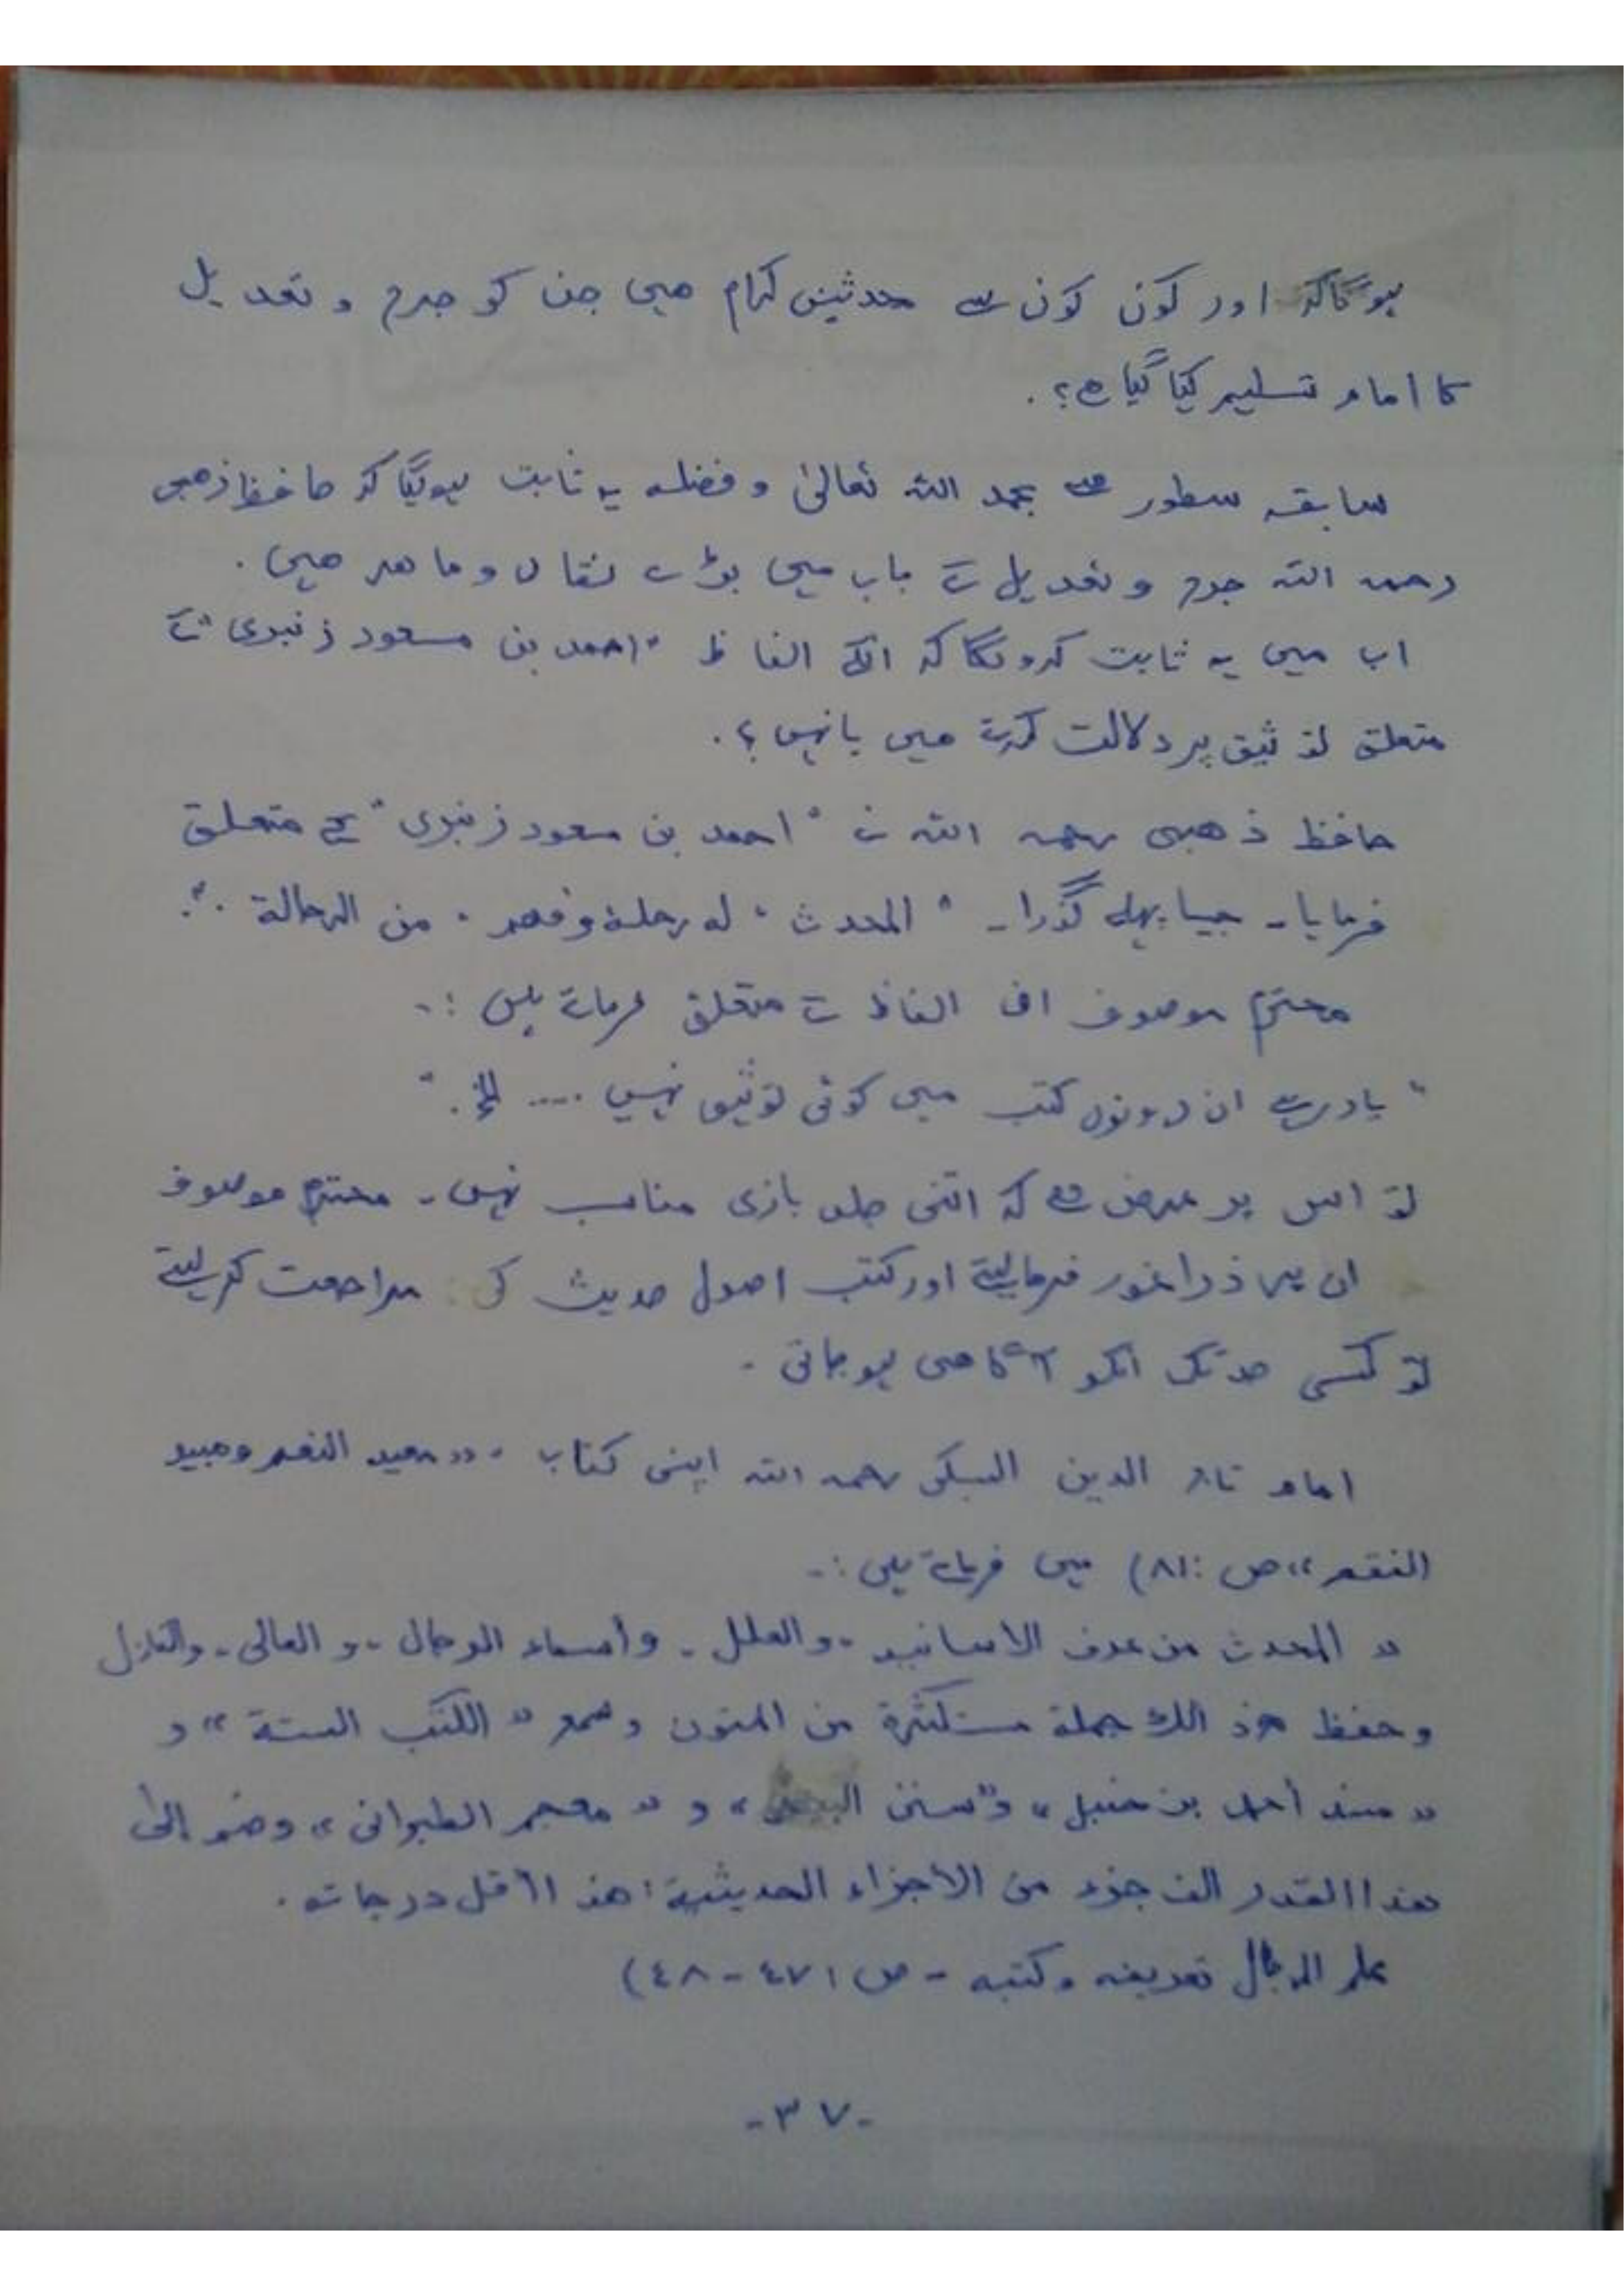 ہوگا کہ اور کون کون سے محدثین کرام ہیں جن کو جرح و تعدیل
کا امام تسلیم کیا گیا ہے؟.
سابقہ سطور سے بحمد اللہ تعالیٰ و فضلہ یہ ثابت ہوگیا کہ حافظ ذھبی
رحمہ اللہ جرح و تعدیل کے باب میں بڑے نقاد و ماھر ھیں.
اب میں یہ ثابت کرونگا کہ انکے الفاظ "احمد بن مسعود زنبری" کے
متعلق توثیق پر دلالت کرتے ھیں یا نہیں؟.
حافظ ذھبی رحمہ اللہ نے "احمد بن مسعود زنبری" کے متعلق
فرمایا۔ جیسا پہلے گذرا۔ "المحدث، له رحلة وفهم، من الرحالة.".
محترم موصوف ان الفاظ کے متعلق فرماتے ہیں:۔
"یاد رہے ان دونوں کتب میں کوئی توثیق نہیں .... الخ."
تو اس پر عرض ہے کہ اتنی جلد بازی مناسب نہیں۔ محترم موصوف
ان پر ذرا غور فرمالیتے اور کتب اصول حدیث کی مراجعت کرلیتے
تو کسی حد تک انکو آگاھی ہوجاتی۔
امام تاج الدین السبکی رحمہ اللہ اپنی کتاب "معید النعم ومبید
النقم" ص: ٨١) میں فرماتے ہیں:۔
"المحدث من عرف الاسانيد۔ والعلل۔ وأسماء الرجال۔ و العالى۔ والنازل
وحفظ مع ذالك جملة مستكثرة من المتون وسمع "الكتب الستة" و
"مسند أحمد بن حنبل" و"سنن البيهقى" و "معجم الطبرانى" وضم إلى
هذا القدر الف جزء من الأجزاء الحديثية؛ هذا أقل درجاته.
علم الرجال تعريفه وكتبه - ص ٤٧١ - ٤٨)
-٣٧-